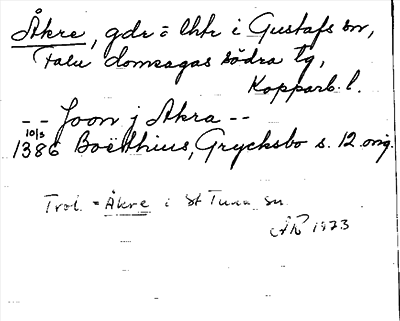 Åkre, gdr = lhtr i Gustafs sn,
Falu domsagas södra tg,
Kopparb. l.
-- Joon j Akra --
10/3
1386 Boëthius, Grycksbo s. 12. orig.
Trol. = Åkre i St Tuna sn.
AR 1973